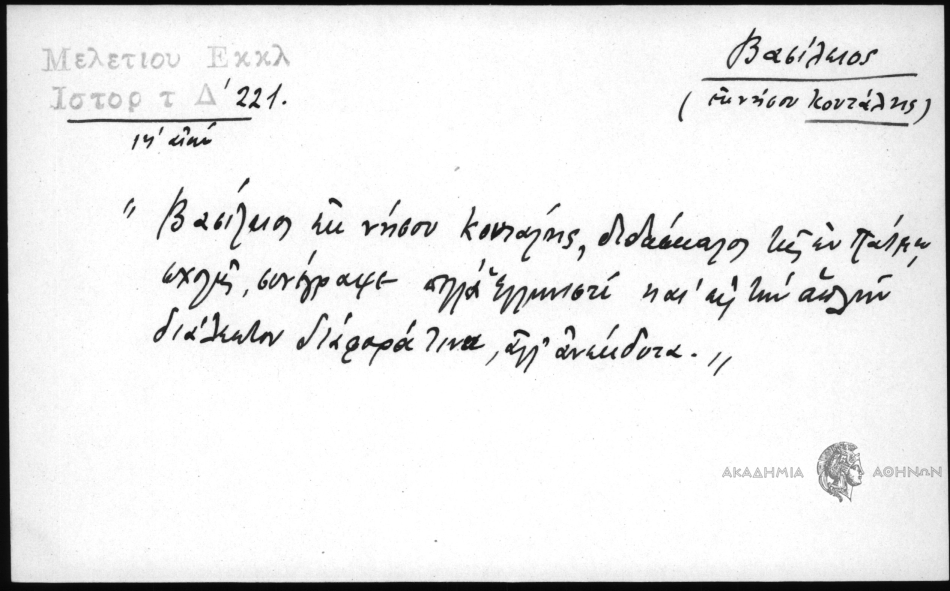 Μελετιου Εκκλ
Ιστορ τ Δ' 221.
ιη' αἰών
Βασίλειος
(ἐκ νήσου Κουτάλης)
" Βασίλειος ἐκ νήσου Κουτάλης, διδάσκαλος τῆς ἐν Πάτμῳ
σχολῆς, συνέγραψε πολλὰ ἑλληνιστὶ καὶ εἰς τὴν ἁπλῆν
διάλεκτον διάφορά τινα, ἀλλ' ἀνέκδοτα. "
ΑΚΑΔΗΜΙΑ ΑΘΗΝΩΝ